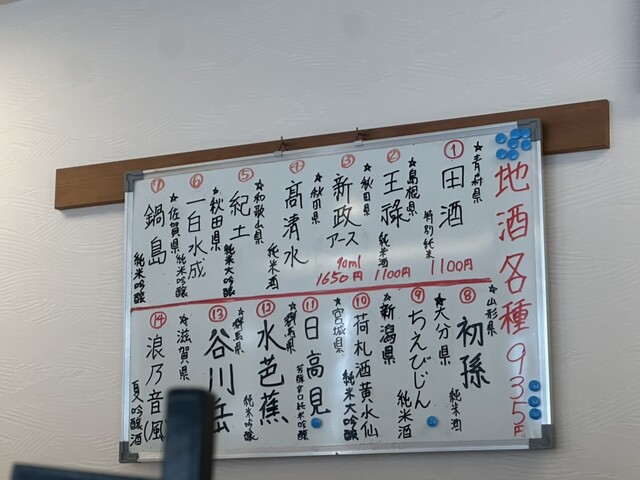 地酒各種 935円
① ★青森県
田酒 特別純米
1100円
② ★島根県
王祿 純米酒
1100円
③ ★秋田県
新政 アース
90ml
1650円
④ ★秋田県
高清水 純米酒
⑤ ★和歌山県
紀土 純米大吟醸
⑥ ★秋田県
一白水成 純米吟醸
⑦ ★佐賀県
鍋島 純米吟醸
⑧ ★山形県
初孫 純米酒
⑨ ★大分県
ちえびじん 純米酒
⑩ ★新潟県
荷札酒黄水仙 純米大吟醸
⑪ ★宮城県
日高見 芳醇辛口純米吟醸
⑫ ★群馬県
水芭蕉 純米吟醸
⑬ ★群馬県
谷川岳
⑭ ★滋賀県
浪乃音(風 夏吟醸酒